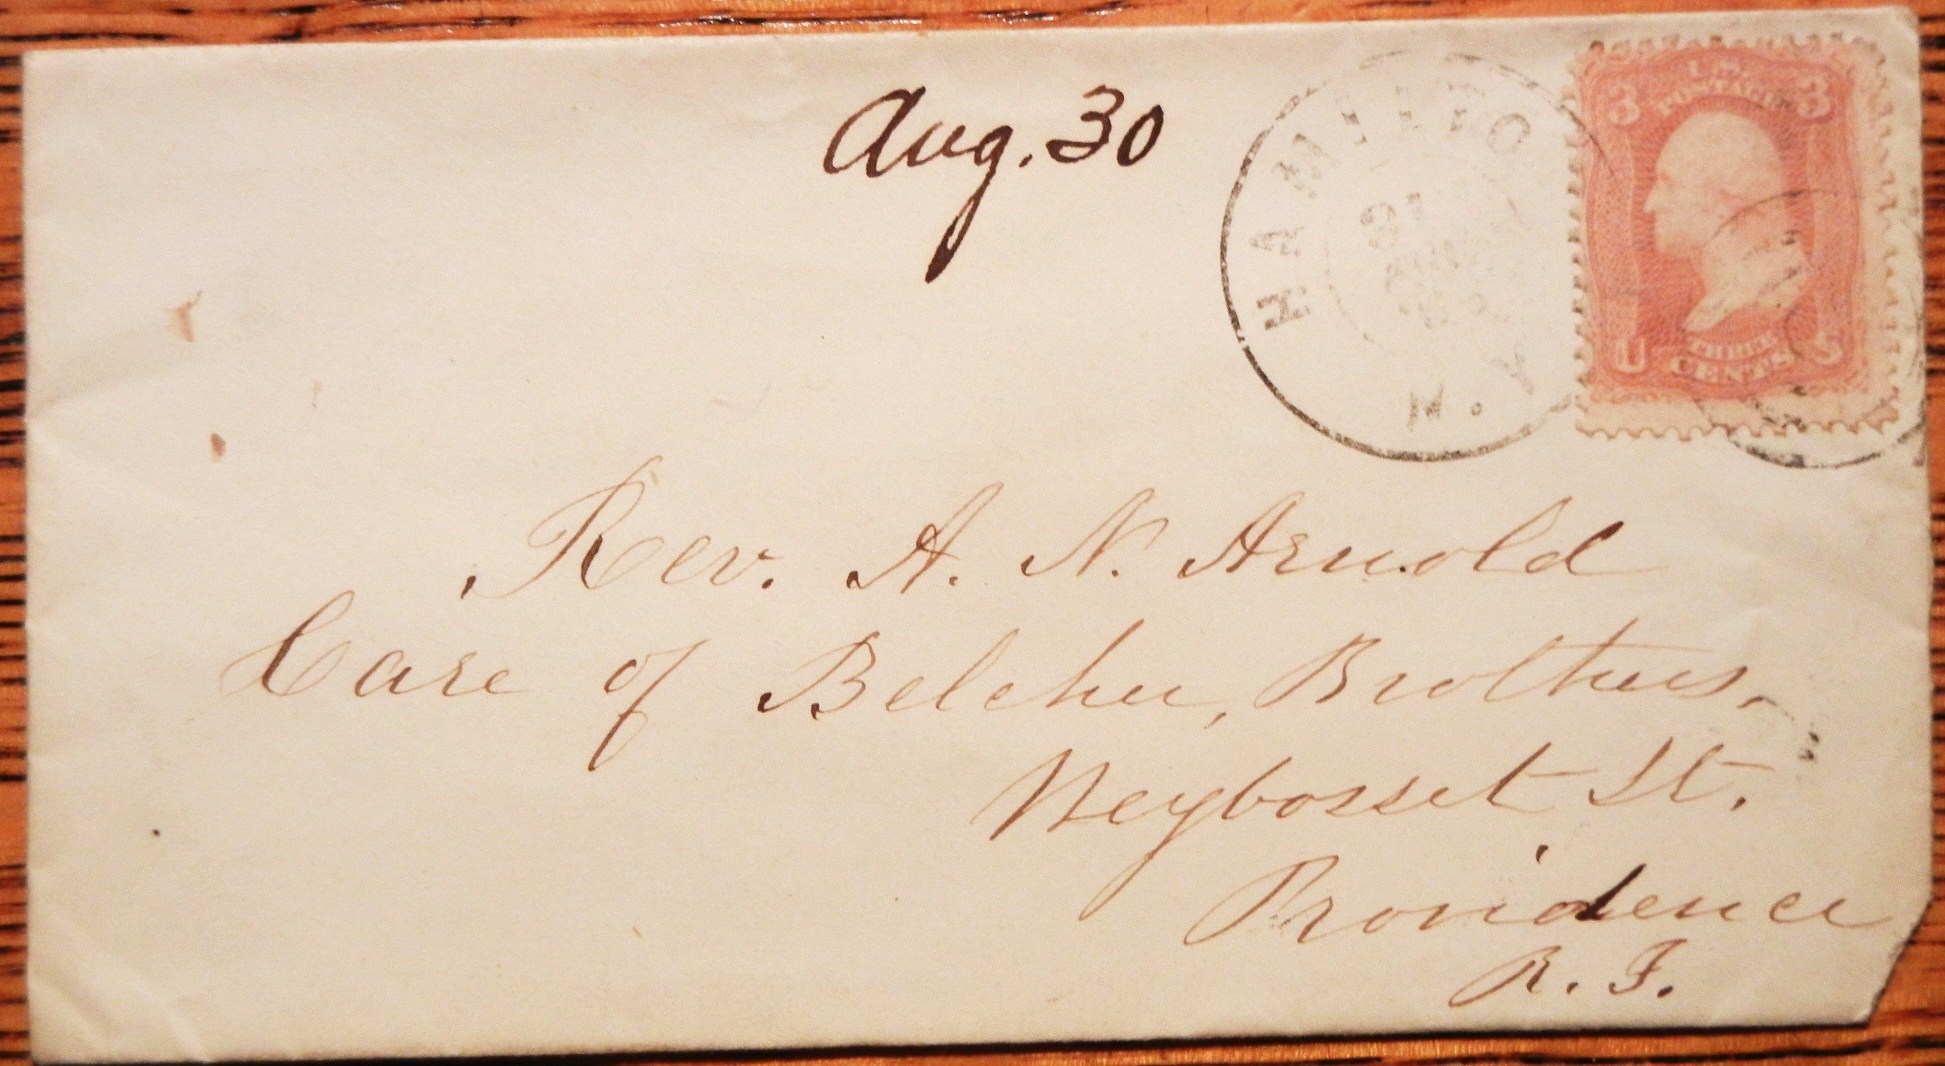 Aug. 30
HAMILTO
N.Y.
3 U.S. 3
POSTAGE
U THREE S
CENTS
Rev. A. N. Arnold
Care of Belcher, Brothers,
Weybosset St.
Providence
R. I.